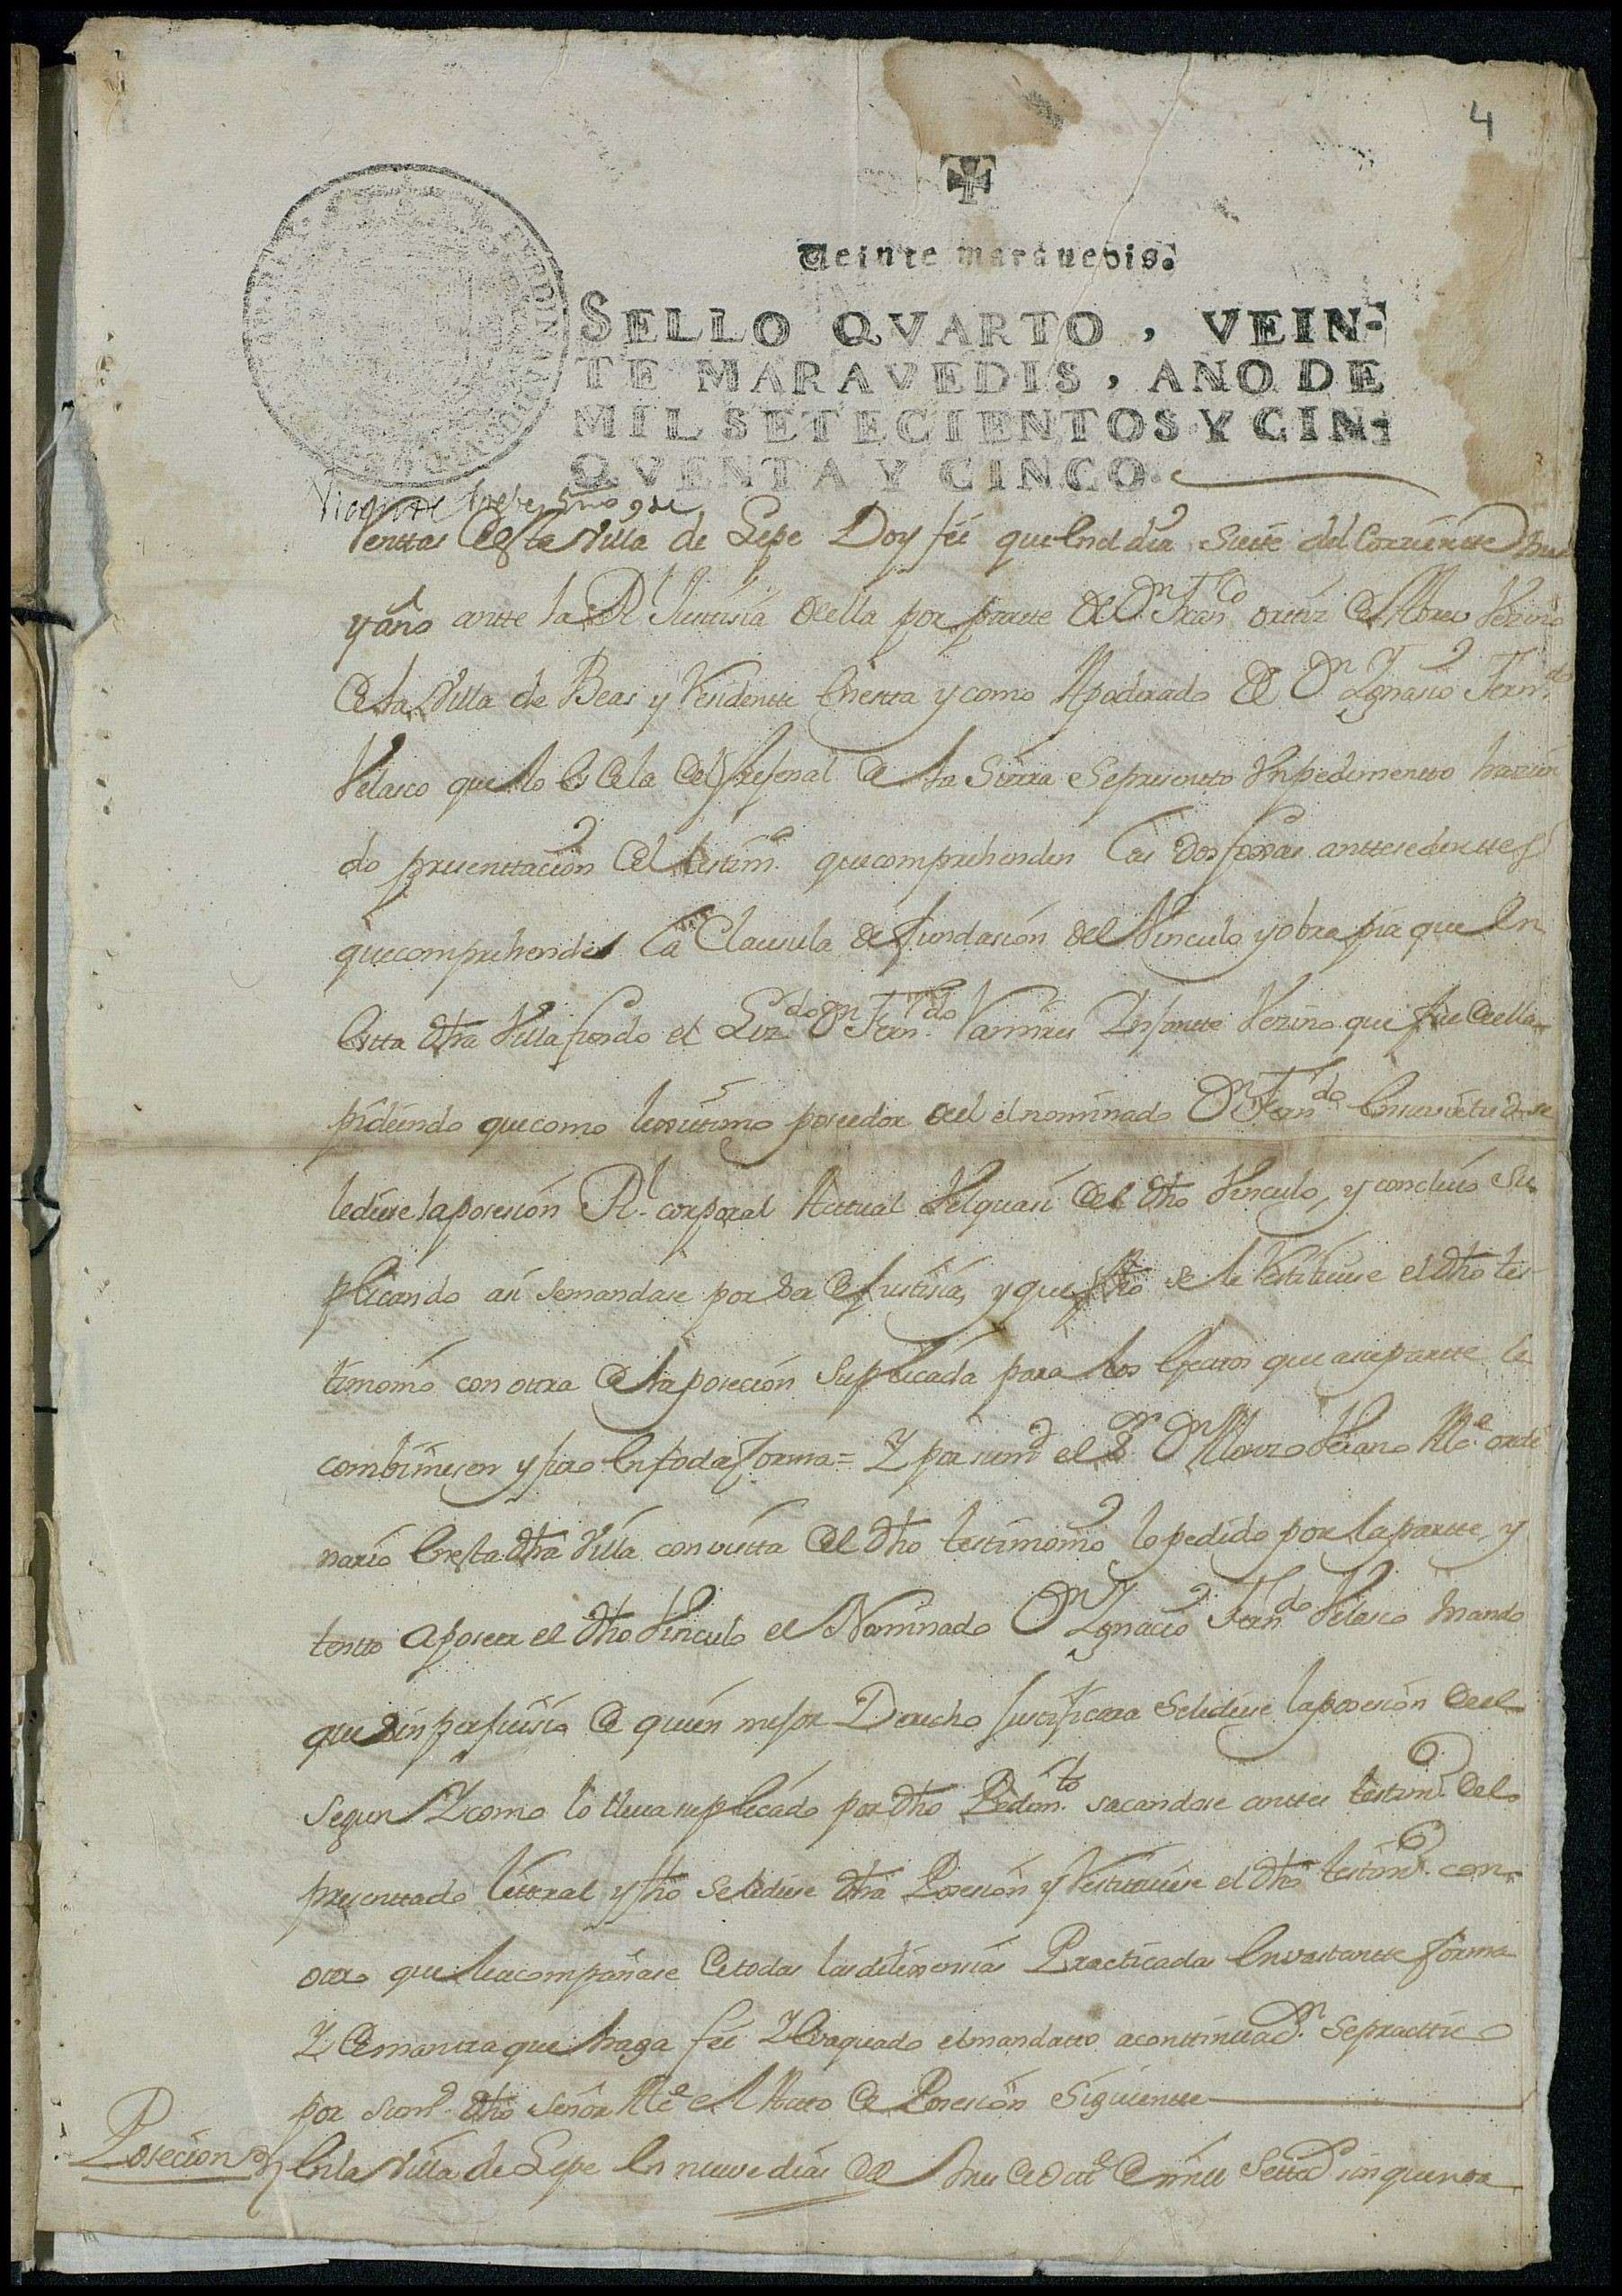 4
Veinte maravedis.
SELLO QVARTO, VEIN-
TE MARAVEDIS, AÑO DE
MIL SETECIENTOS Y CIN-
QVENTA Y CINCO.
Renttas de esta Villa de Lepe Doy feé que en el dia Siete del Corriente mes
y año antte la Rl. Justisia de ella por partte de Dn. Franco. orttiz de Abreu Vezino
de la Villa de Beas y Residente en esta y como Apoderado de Dn. Ygnasio Ferndo.
Velasco que lo es de la del frejenal de la Sierra se presentto Un pedimentto hazien
do presenttacion del testimo. que comprehenden las dos foxas anttesedenttes
que comprehende la Clausula de fundasion del Vinculo y obra pia que en
estta dha Villa fundo el Lizdo. Dn. Ferndo. Ramires Infantte Vezino que fue de ella
pidiendo que como lexitimo poseedor de el el nominado Dn. Ferndo. en su virtud se
le diese la posesion Rl. corporal Acttual Velquasi del dho Vinculo, y concluio Su
plicando asi se mandase por ser de Justisia, y que fho se le Restituiese el dho tes
timonio con otra de la posecion Suplicada para los efectos que a su partte le
combiniesen y juro en toda forma = Y por su md. el Sr. Dn. Alonso Verano Alce. ordi
nario en esta dha Villa con vistta del dho testimonio lo pedido por la partte y
tento a poseer el dho Vinculo el Nominado Dn. Ygnacio Ferndo. Velasco mando
que sin perjuisio de quien mejor Derecho Justificara se le diese la posesion de el
Segun Y como lo lleva suplicado por dho Pedimto. sacandose anttes testimo. del
presenttado litteral y fho se le diese dha Posesion y Restituiese el dho testimo. con
otro que le acompañase de todas las dilixensias Practicadas en vastantte forma
Y de manera que haga feé Y Evaquado el mandatto a conttinuacn. se practtico
por su md. dho Señor Alce. el Auto de Posesion Siguientte
Posecion En la Villa de Lepe en nueve dias del mes de octe. de mill Settos. sinquenta